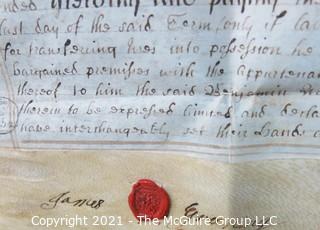 and paying the
last day of the said Term only if
for transferring uses into possession he
bargained premises with the Appurtenan
thereof to him the said Benjamin
therein to be expressed limited and declar
have interchangeably set their Hands
James
Copyright 2021 - The McGuire Group LLC